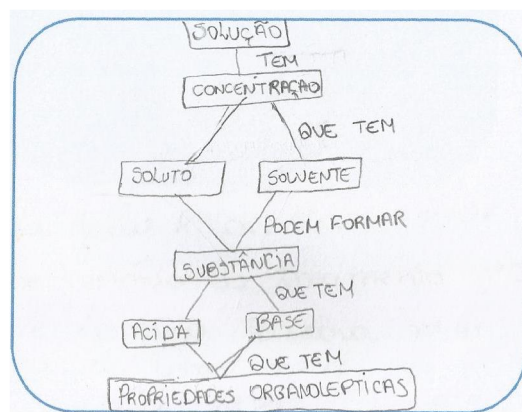 SOLUÇÃO
TEM
CONCENTRAÇÃO
QUE TEM
SOLUTO SOLVENTE
PODEM FORMAR
SUBSTÂNCIA
QUE TEM
ACIDA BASE
QUE TEM
PROPRIEDADES ORGANOLEPTICAS